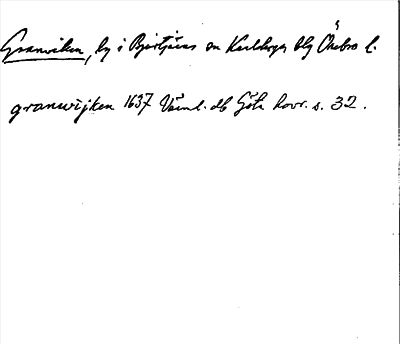 Granviken, by i Bjurtjärns sn Karlskoga bg Örebro l.
granwijken 1637 Värml. db Göta hovr. s. 32.